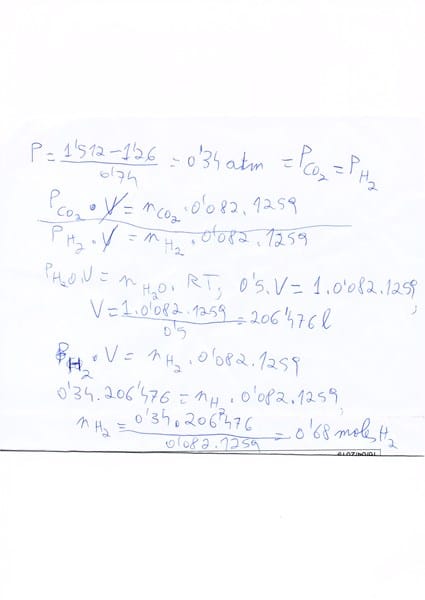 P = 1'512 - 1'26 / 0'74 = 0'34 atm = P CO2 = P H2
P CO2 · V = n CO2 · 0'082 · 1259
P H2 · V = n H2 · 0'082 · 1259
P H2O · V = n H2O · RT; 0'5 · V = 1 · 0'082 · 1259;
V = 1 · 0'082 · 1259 / 0'5 = 206'476 l
P H2 · V = n H2 · 0'082 · 1259
0'34 · 206'476 = n H · 0'082 · 1259;
n H2 = 0'34 · 206'476 / 0'082 · 1259 = 0'68 moles H2